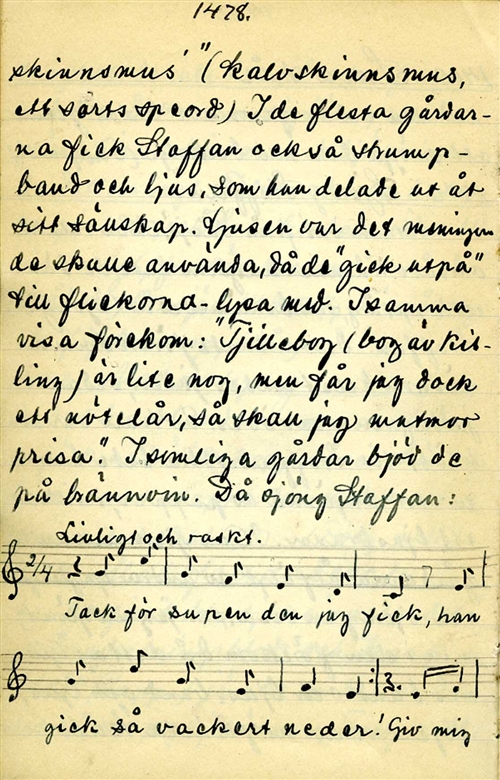 1478.
skinnsmus" (kalvskinnsmus,
ett sorts spe ord) I de flesta gårdar-
na fick Staffan också strump-
band och ljus, som han delade ut åt
sitt sänskap. Ljusen var det meningen
de skulle använda, då de "gick utpå"
till flickorna - lysa med. I samma
visa förekom: "Tjillebog (bog av kil-
ling) är lite nog, men får jag dock
ett nötelår, så skall jag mutmor
prisa." I somliga gårdar bjöd de
på brännvin. Då sjöng Staffan:
Livligt och raskt.
2/4
Tack för supen den jag fick, han
gick så vackert neder! Giv mig